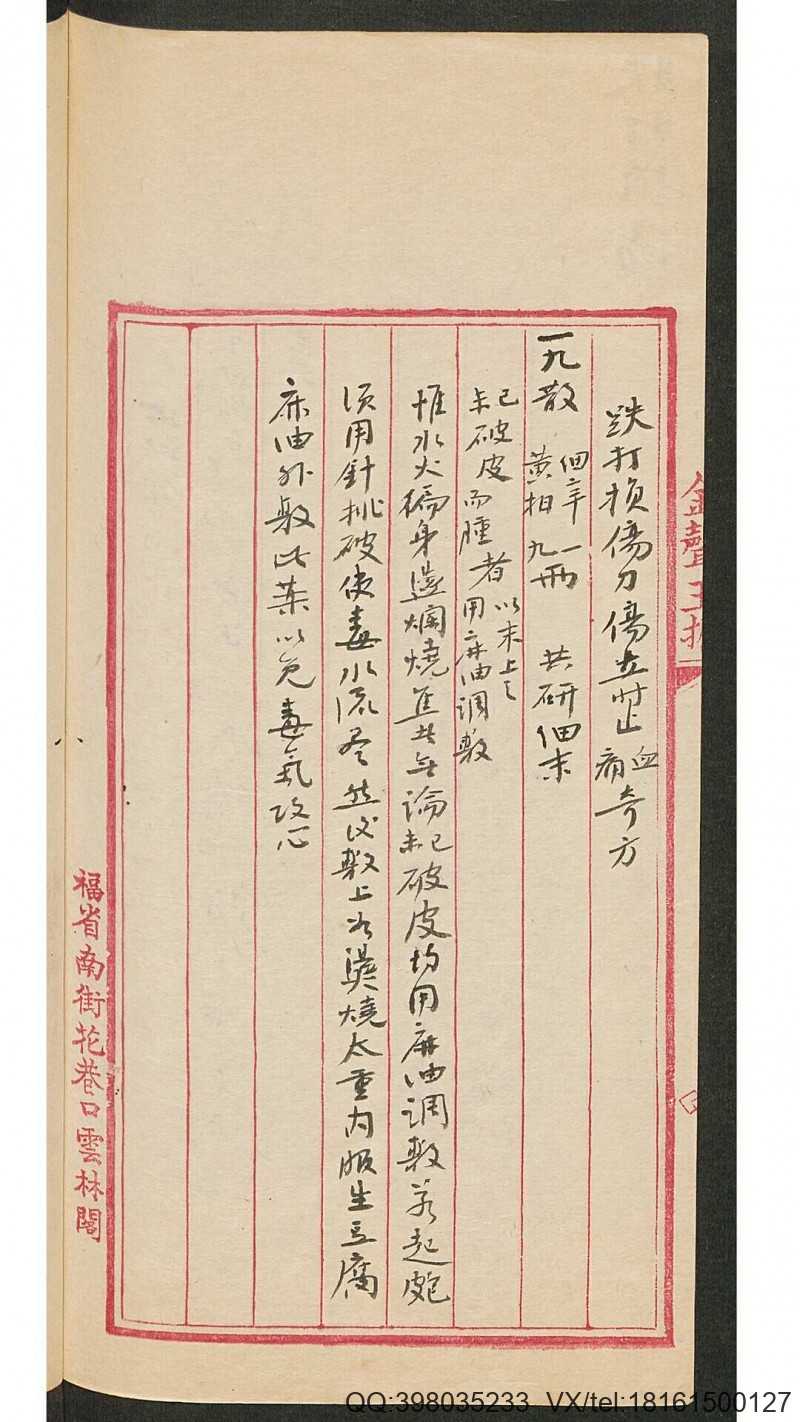 跌打损傷刀傷立時止血痛奇方
一九散 细辛一两 黄柏九两 共研细末
已未破皮而腫者以末上之用麻油調敷
惟水火傷身邊爛燒焦者無論已未破皮均用麻油調敷若起皰
须用針挑破使毒水流尽然後敷上如燙燒太重内服生豆腐
麻油外敷此薬以免毒氣攻心
金聲玉振
福省南街花巷口雲林閣
QQ:398035233 VX/tel:18161500127